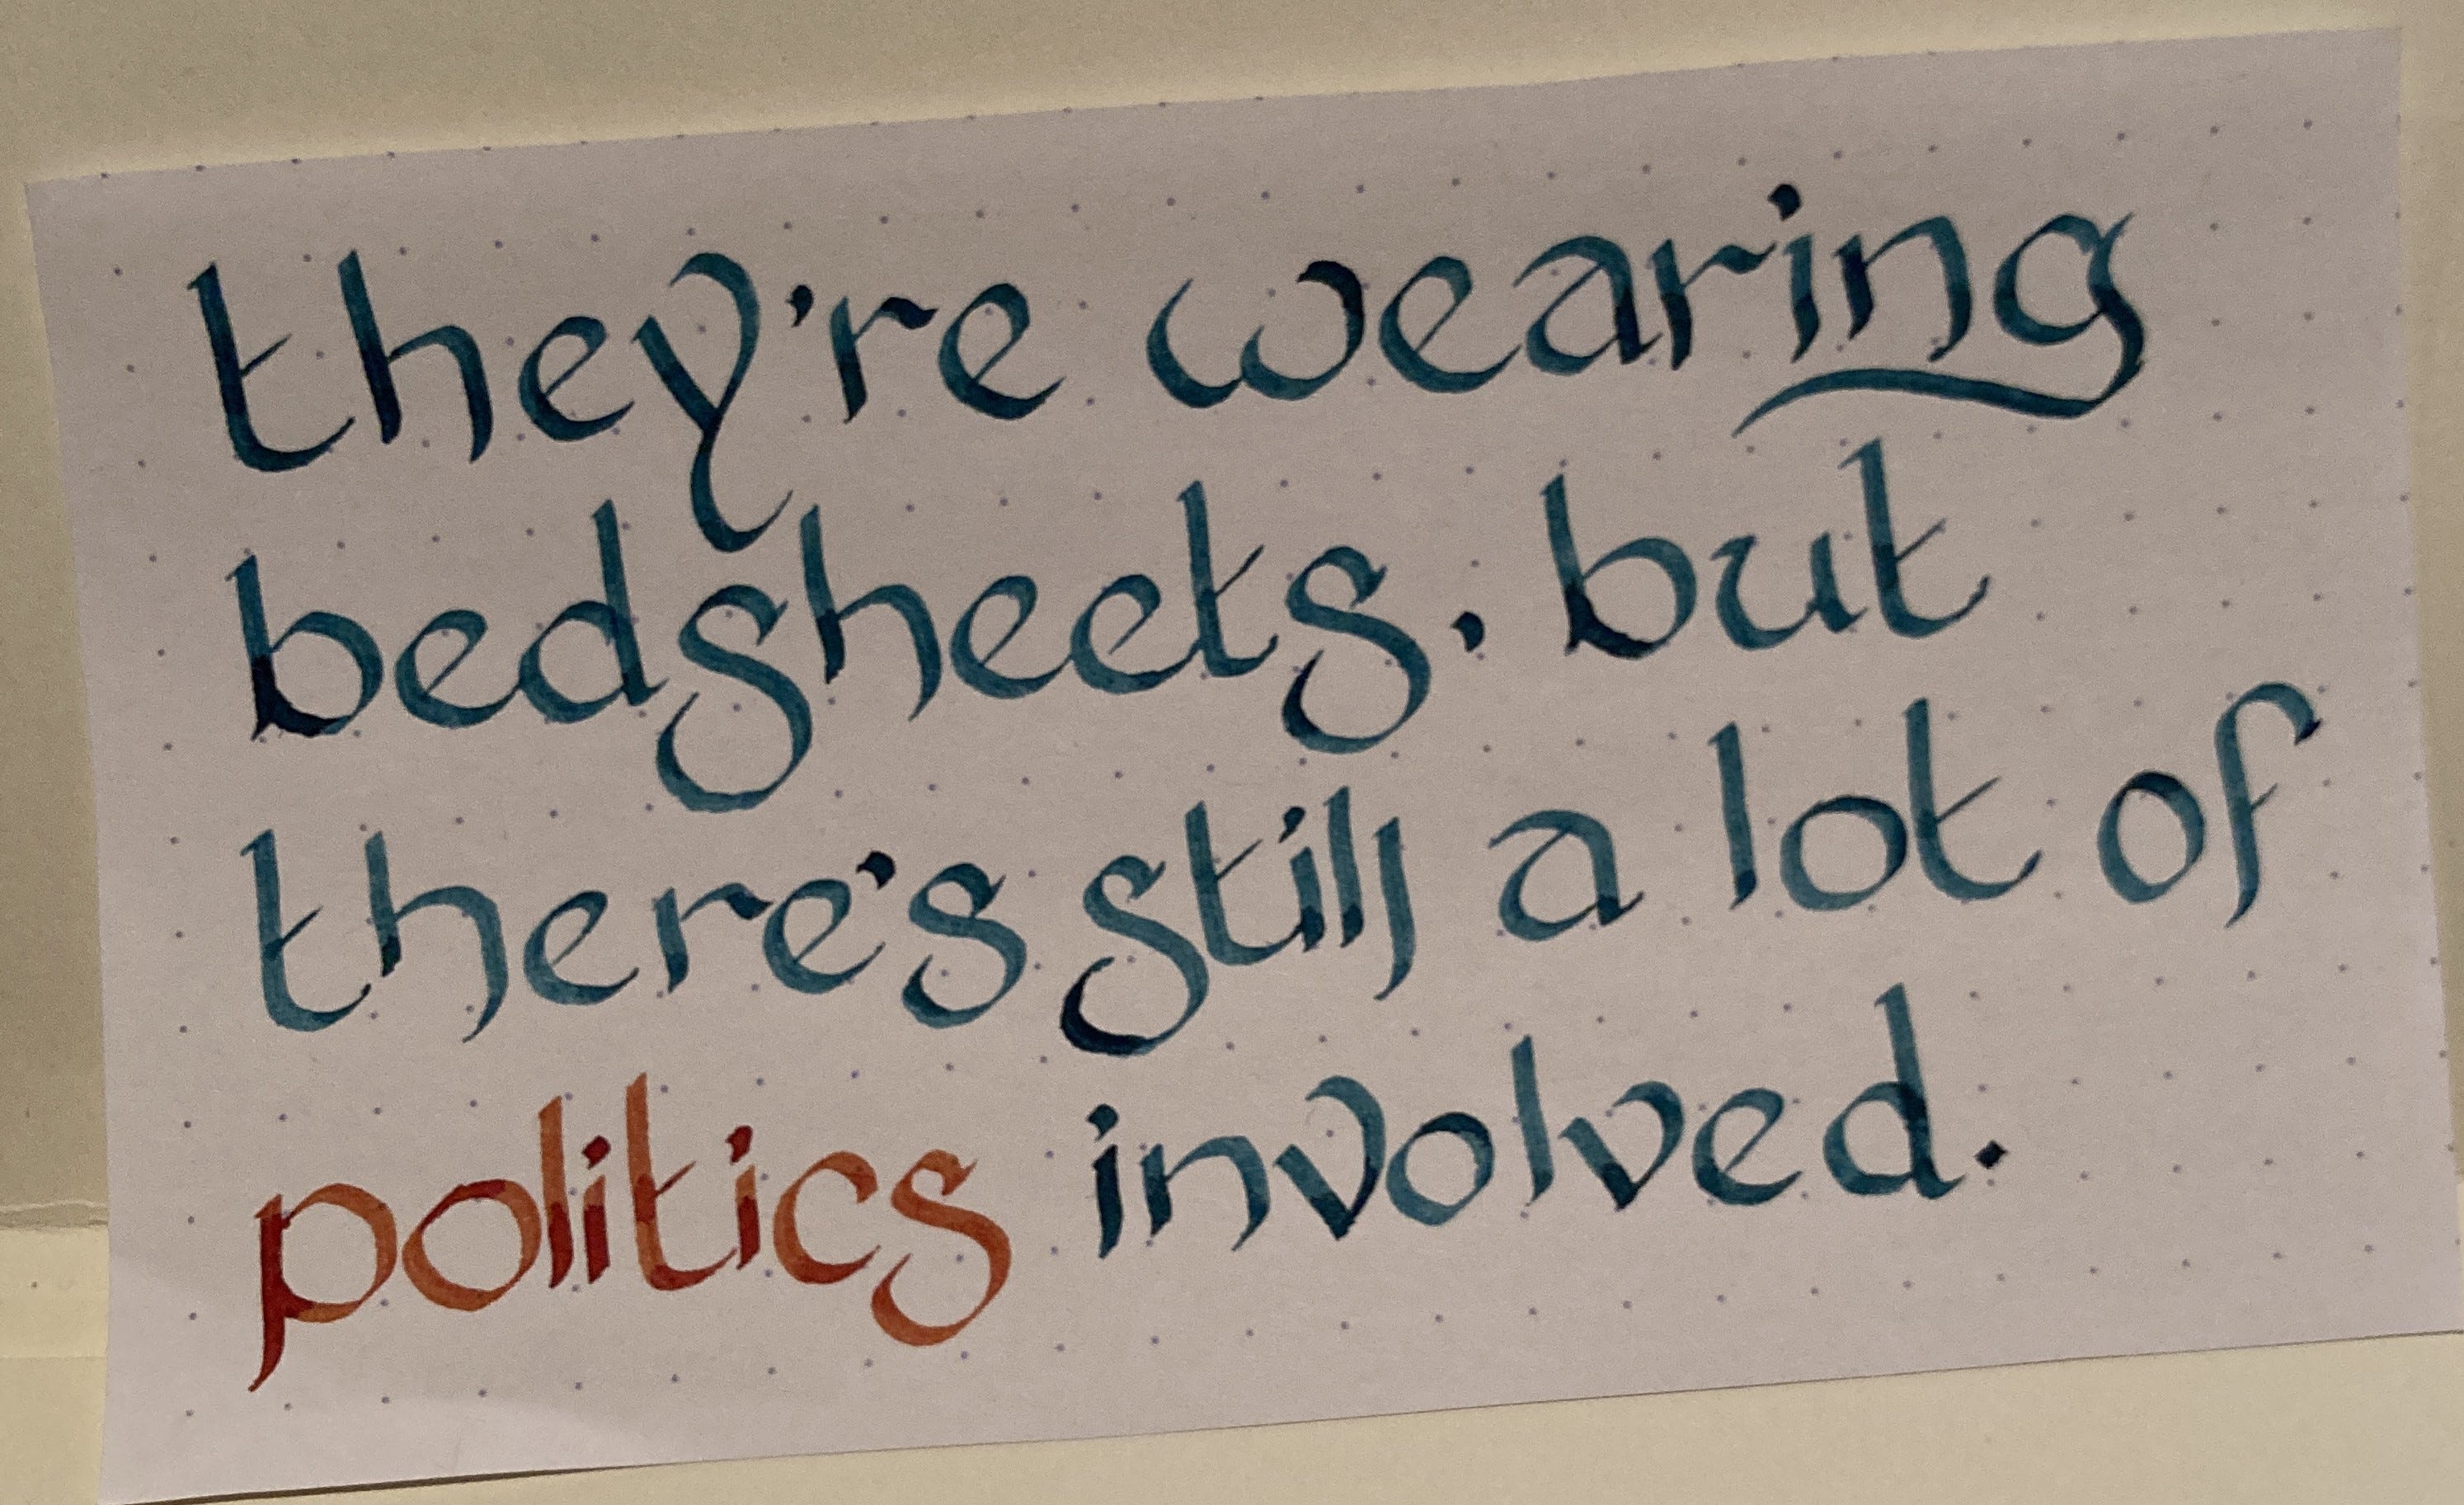 they're wearing
bedsheets, but
there's still a lot of
politics involved.